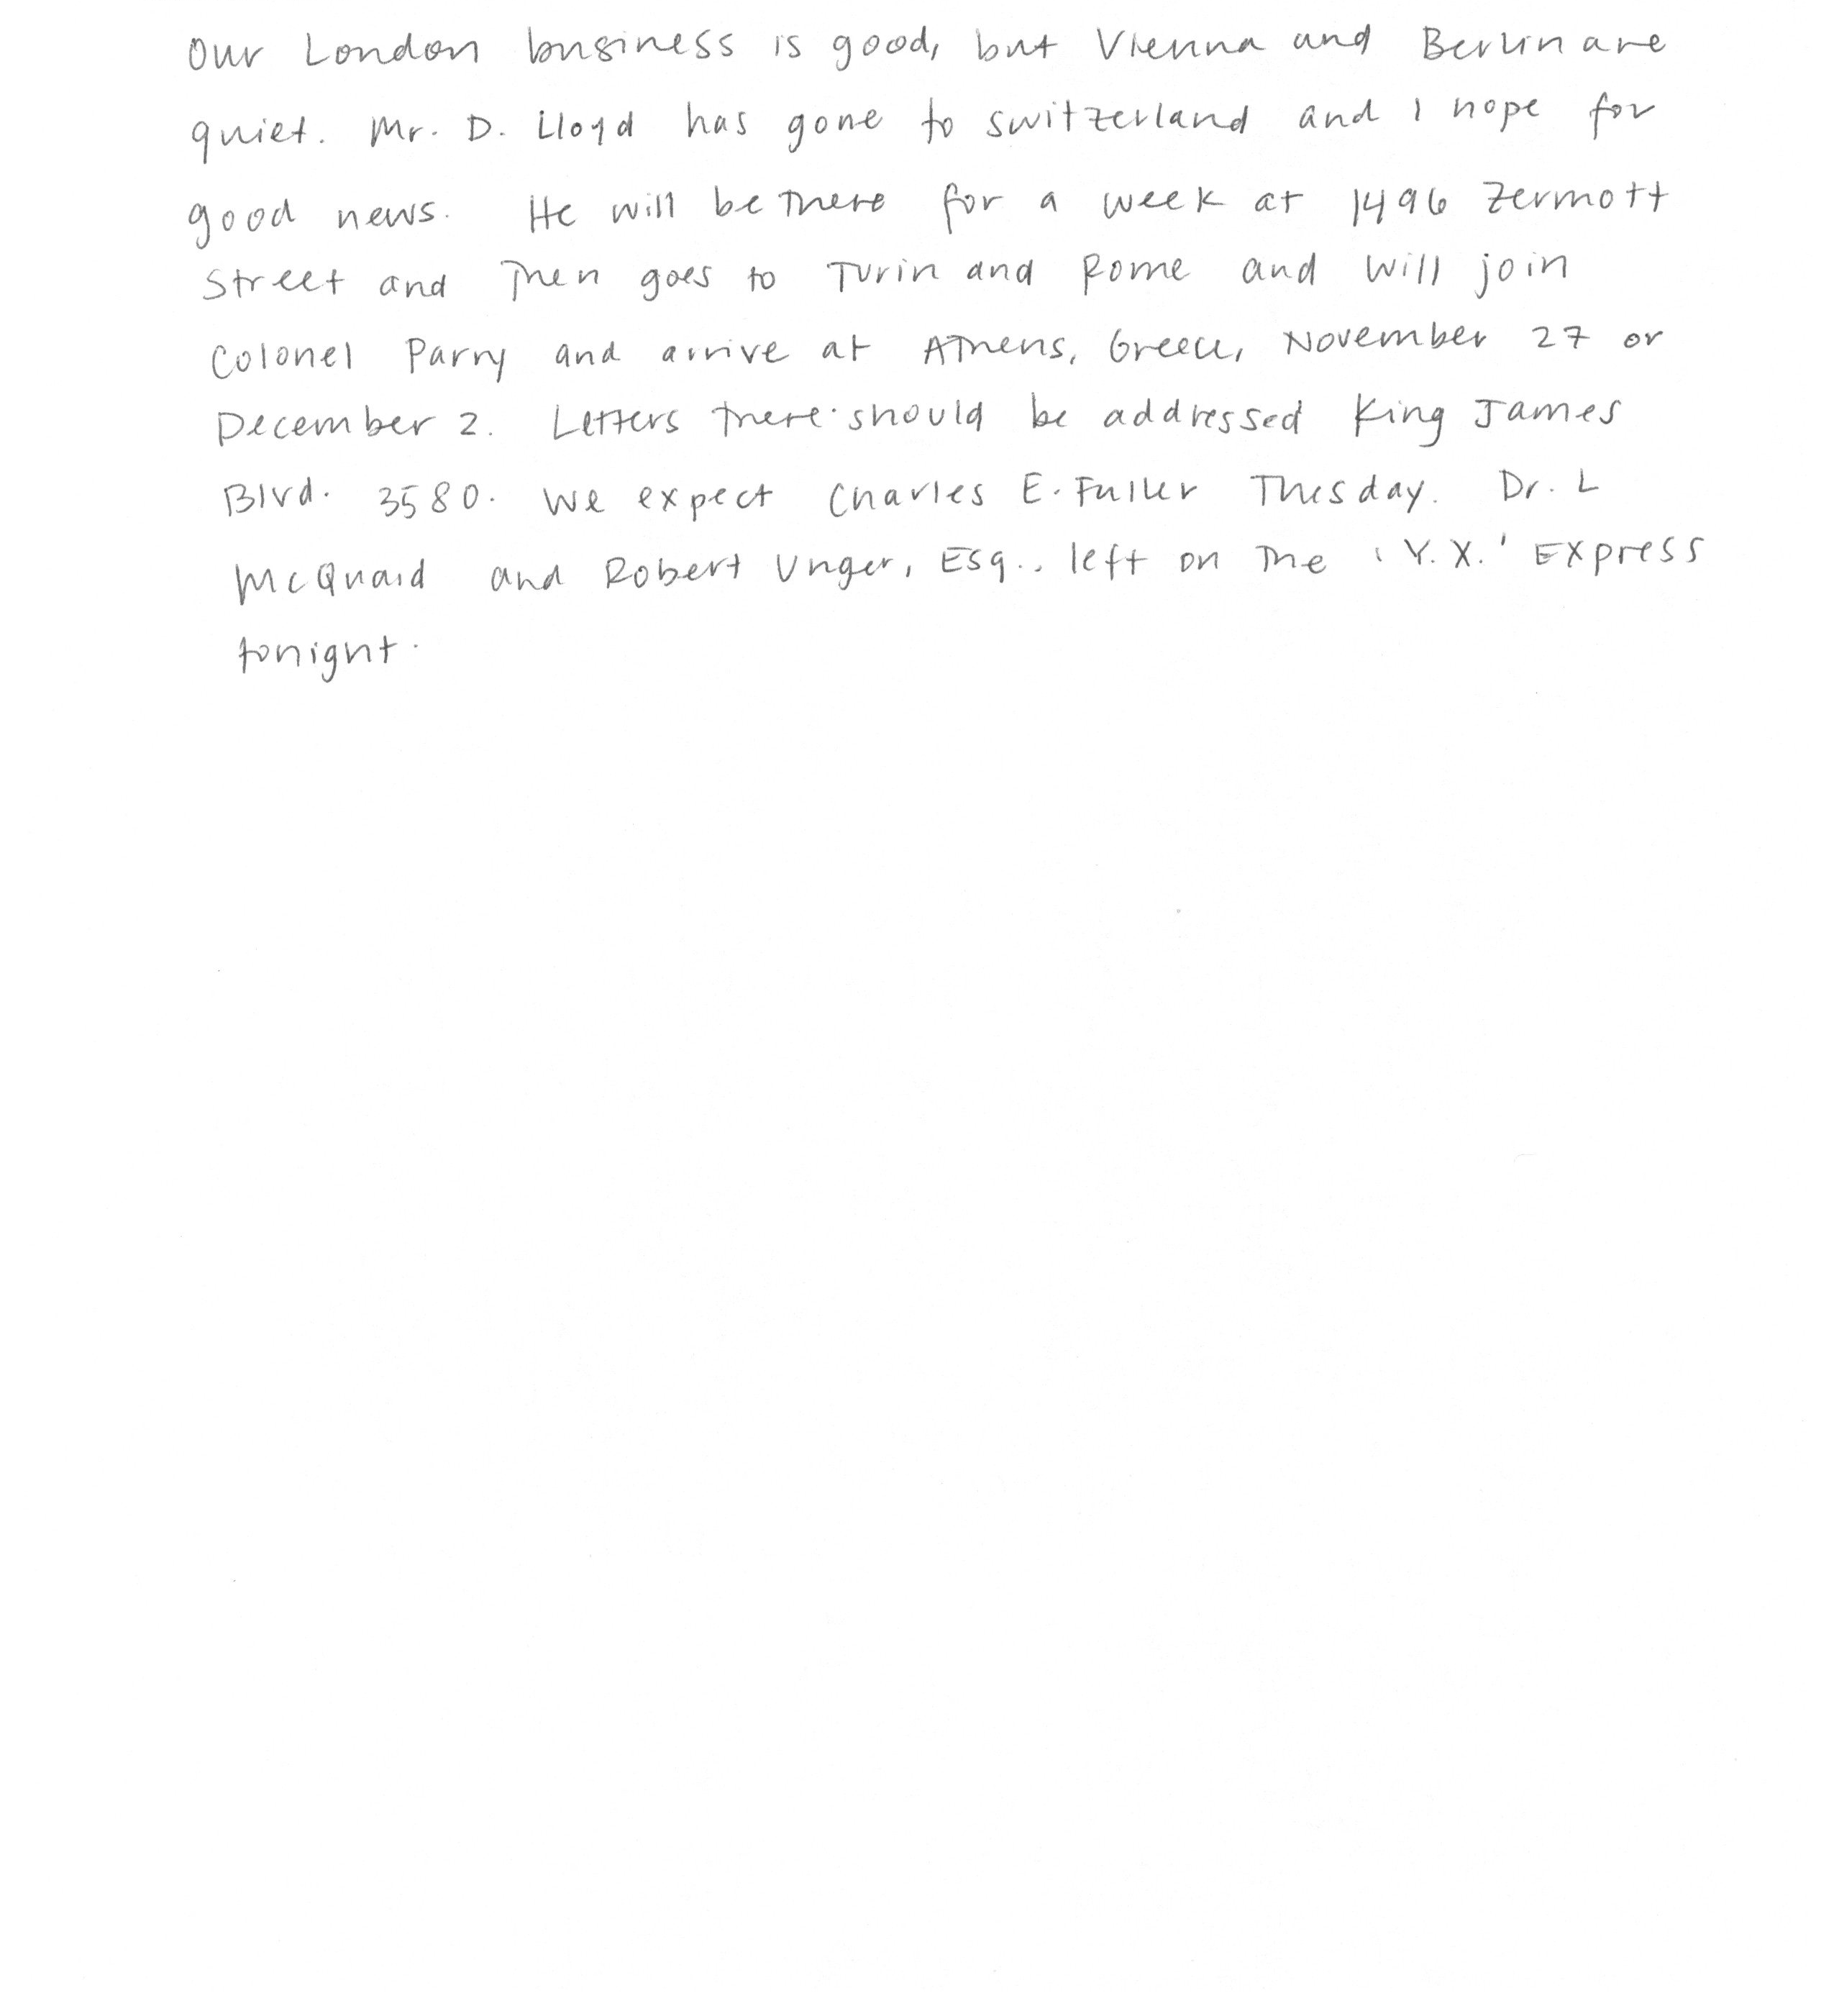 Our London business is good, but Vienna and Berlin are
quiet. Mr. D. Lloyd has gone to Switzerland and I hope for
good news. He will be there for a week at 1496 Zermott
Street and then goes to Turin and Rome and will join
Colonel Parry and arrive at Athens, Greece, November 27 or
December 2. Letters there should be addressed King James
Blvd. 3580. We expect Charles E. Fuller Thesday. Dr. L
McQuaid and Robert Unger, Esq., left on the 'Y.X.' Express
tonight.